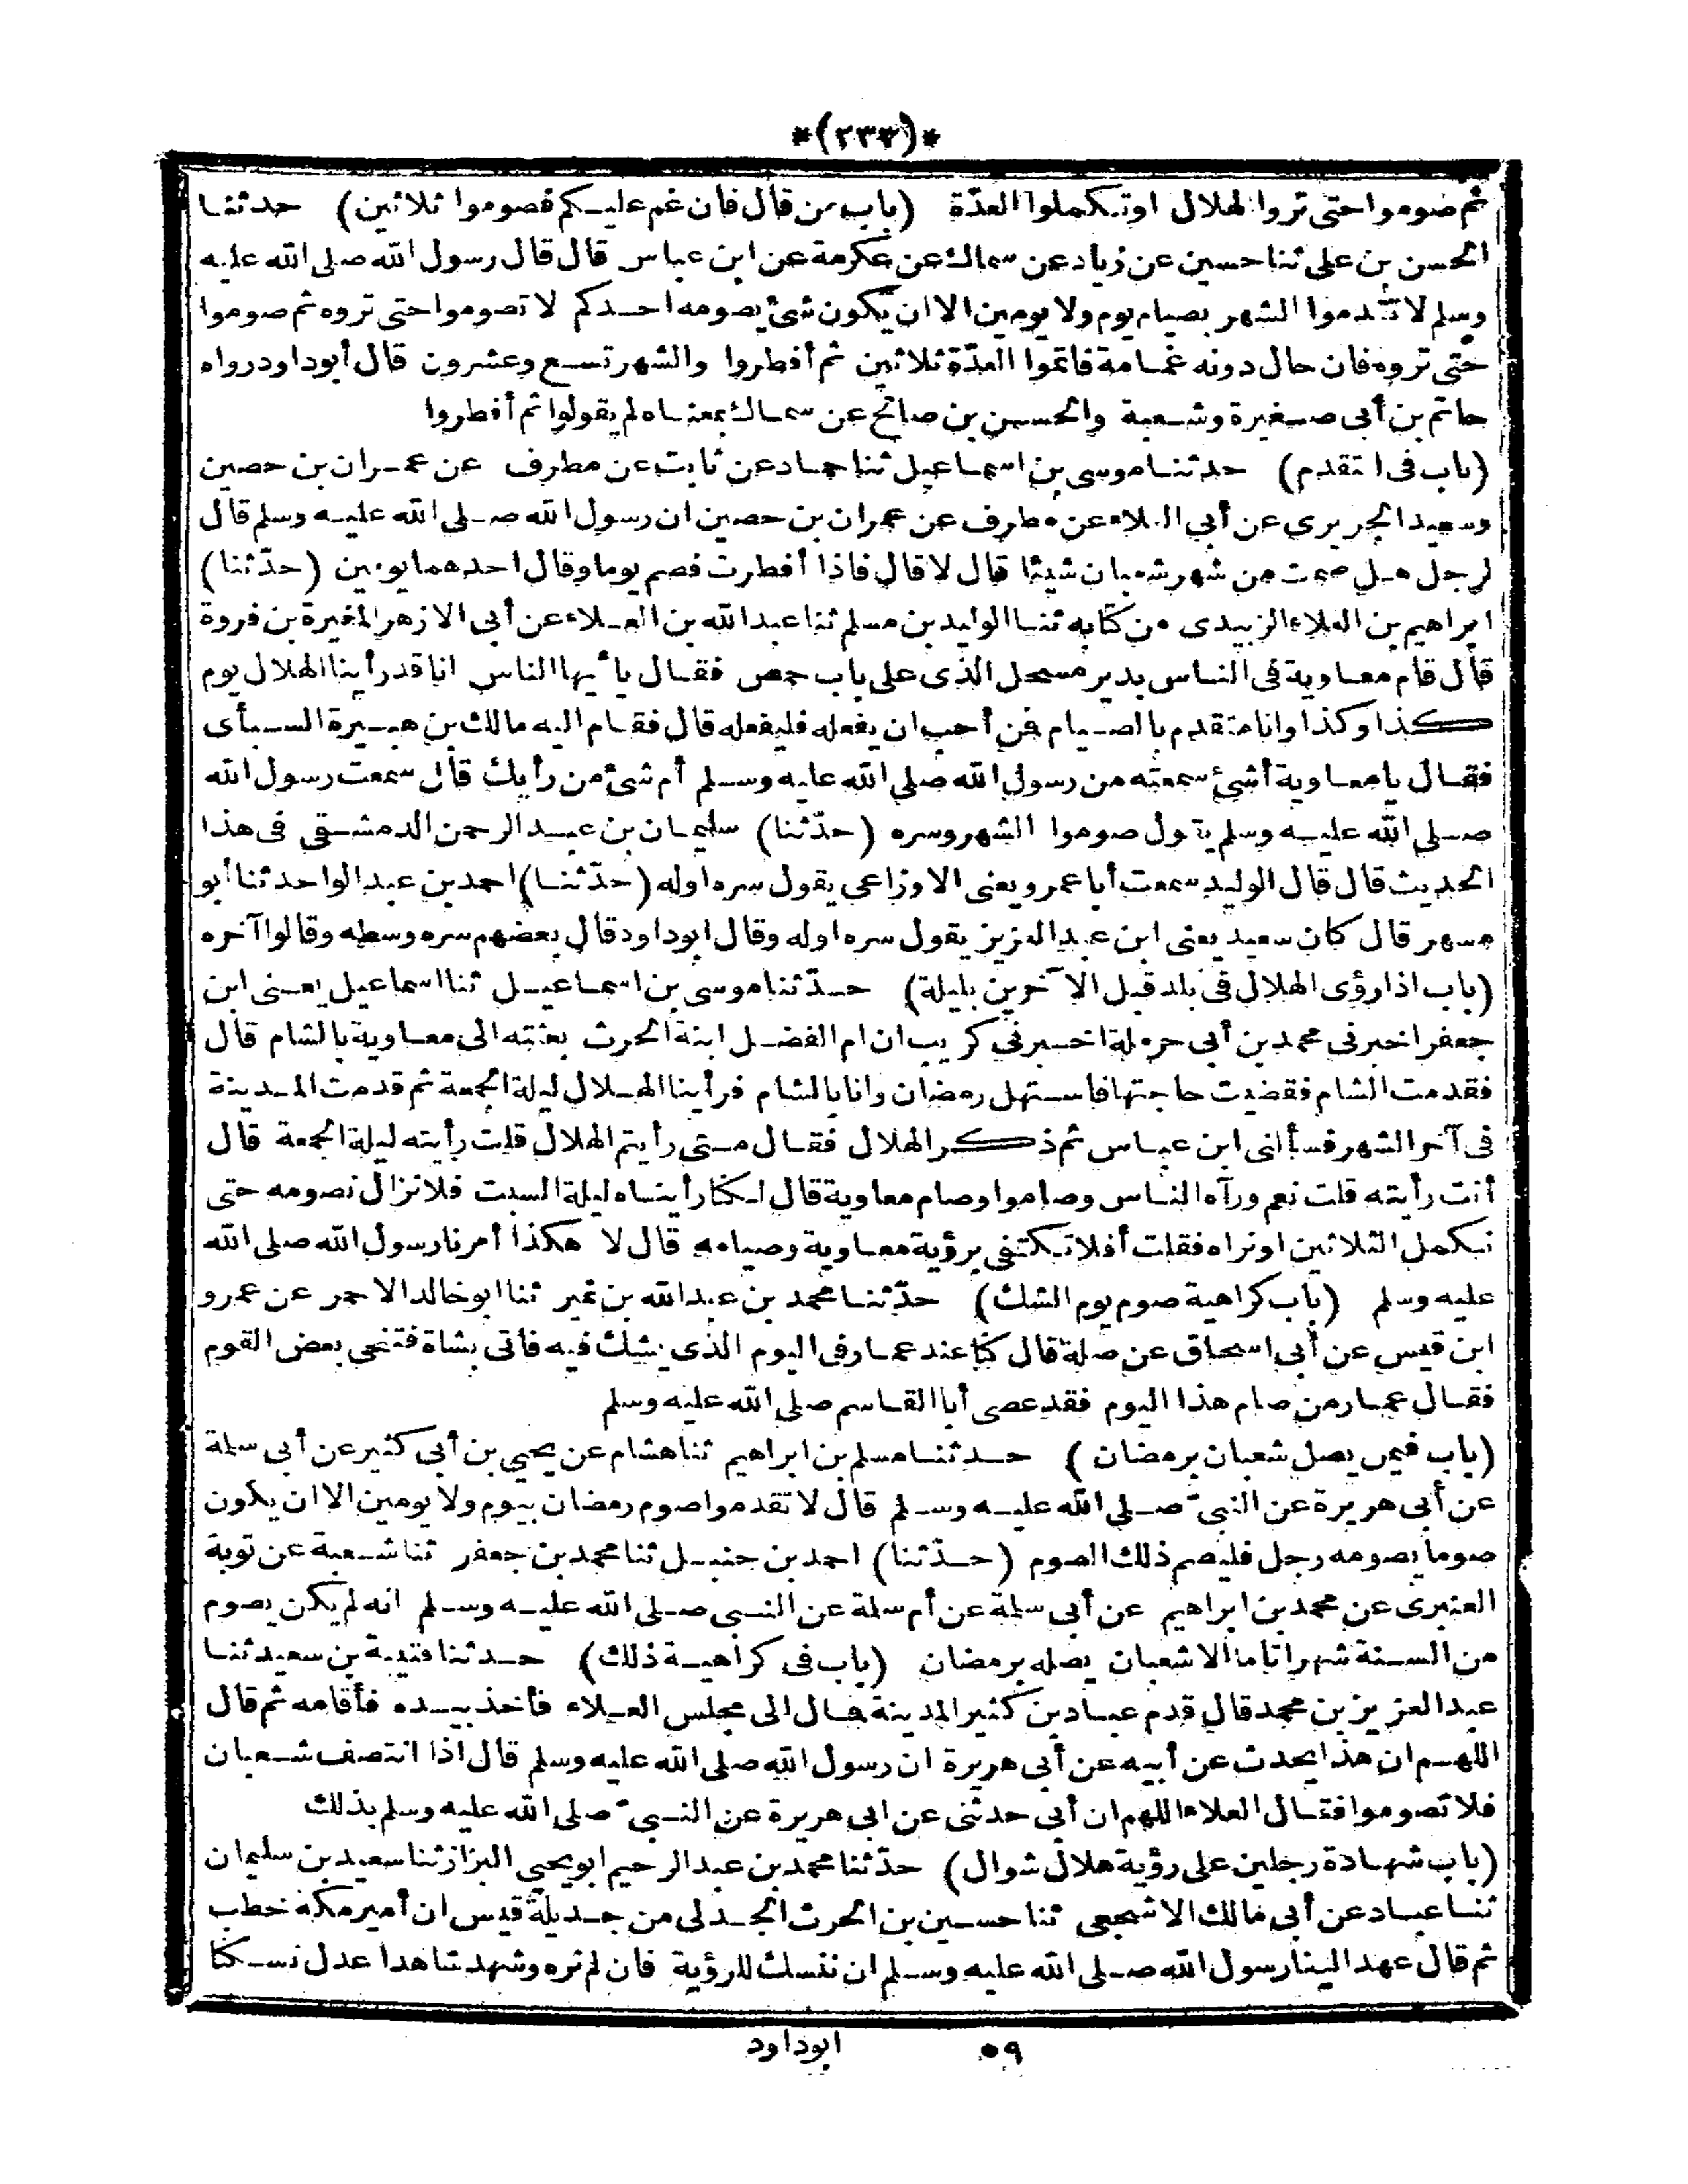 *(٢٣٣)*
ثم صوموا حتى تروا الهلال اوتكملوا العدّة (باب من قال فان غم عليكم فصوموا ثلاثين) حدثنا
الحسن بن على ثنا حسين عن زياد عن سماك عن عكرمة عن ابن عباس قال قال رسول الله صلى الله عليه
وسلم لا تقدموا الشهر بصيام يوم ولا يومين الا ان يكون شئ يصومه احدكم لا تصوموا حتى تروه ثم صوموا
حتى تروه فان حال دونه غمامة فاتموا العدّة ثلاثين ثم أفطروا والشهر تسع وعشرون قال أبو داود رواه
حاتم بن أبى صغيرة وشعبة والحسن بن صالح عن سماك بمعناه لم يقولوا ثم أفطروا
(باب فى التقدم) حدثنا موسى بن اسماعيل ثنا حماد عن ثابت عن مطرف عن عمران بن حصين
وسعيد الجريرى عن أبي العلاء عن مطرف عن عمران بن حصين ان رسول الله صلى الله عليه وسلم قال
لرجل هل صمت من شهر شعبان شيئا قال لا قال فاذا أفطرت فصم يوما وقال احدهما يومين (حدّثنا)
ابراهيم بن العلاء الزبيدى من كتابه ثنا الوليد بن مسلم ثنا عبد الله بن العلاء عن أبى الازهر المغيرة بن فروة
قال قام معاوية فى الناس بدير مسحل الذى على باب حمص فقال يا أيها الناس انا قد رأينا الهلال يوم
كذا وكذا وانا متقدم بالصيام فمن أحب ان يفعله فليفعله قال فقام اليه مالك بن هبيرة السبأى
فقال يا معاوية أشئ سمعته من رسول الله صلى الله عليه وسلم أم شئ من رأيك قال سمعت رسول الله
صلى الله عليه وسلم يقول صوموا الشهر وسره (حدّثنا) سليمان بن عبد الرحمن الدمشقى فى هذا
الحديث قال قال الوليد سمعت أبا عمرو يعنى الاوزاعى يقول سره اوله (حدّثنا) احمد بن عبد الواحد ثنا أبو
مسهر قال كان سعيد يعنى ابن عبد العزيز يقول سره اوله وقال ابو داود قال بعضهم سره وسطه وقالوا آخره
(باب اذا رؤى الهلال فى بلد قبل الآخرين بليلة) حدّثنا موسى بن اسماعيل ثنا اسماعيل يعنى ابن
جعفر اخبرنى محمد بن أبى حرملة اخبرنى كريب ان ام الفضل ابنة الحرث بعثته الى معاوية بالشام قال
فقدمت الشام فقضيت حاجتها فاستهل رمضان وانا بالشام فرأينا الهلال ليلة الجمعة ثم قدمت المدينة
فى آخر الشهر فسألنى ابن عباس ثم ذكر الهلال فقال متى رأيتم الهلال قلت رأيته ليلة الجمعة قال
أنت رأيته قلت نعم ورآه الناس وصاموا وصام معاوية قال لكنا رأيناه ليلة السبت فلا نزال نصومه حتى
نكمل الثلاثين او نراه فقلت أفلا تكتفى برؤية معاوية وصيامه قال لا هكذا أمرنا رسول الله صلى الله
عليه وسلم (باب كراهية صوم يوم الشك) حدّثنا محمد بن عبد الله بن نمير ثنا ابو خالد الاحمر عن عمرو
ابن قيس عن أبى اسحاق عن صلة قال كنا عند عمار فى اليوم الذى يشك فيه فاتى بشاة فتنحى بعض القوم
فقال عمار من صام هذا اليوم فقد عصى أبا القاسم صلى الله عليه وسلم
(باب فيمن يصل شعبان برمضان) حدثنا مسلم بن ابراهيم ثنا هشام عن يحيى بن أبى كثير عن أبى سلمة
عن أبى هريرة عن النبىّ صلى الله عليه وسلم قال لا تقدموا صوم رمضان بيوم ولا يومين الا ان يكون
صوما يصومه رجل فليصم ذلك الصوم (حدّثنا) احمد بن حنبل ثنا محمد بن جعفر ثنا شعبة عن توبة
العنبرى عن محمد بن ابراهيم عن أبى سلمة عن أم سلمة عن النبى صلى الله عليه وسلم انه لم يكن يصوم
من السنة شهرا تاما الا شعبان يصله برمضان (باب فى كراهية ذلك) حدثنا قتيبة بن سعيد ثنا
عبد العزيز بن محمد قال قدم عباد بن كثير المدينة فمال الى مجلس العلاء فأخذ بيده فأقامه ثم قال
اللهم ان هذا يحدث عن أبيه عن أبى هريرة ان رسول الله صلى الله عليه وسلم قال اذا انتصف شعبان
فلا تصوموا فقال العلاء اللهم ان أبى حدثنى عن ابى هريرة عن النبىّ صلى الله عليه وسلم بذلك
(باب شهادة رجلين على رؤية هلال شوال) حدّثنا محمد بن عبد الرحيم ابو يحيى البزاز ثنا سعيد بن سليمان
ثنا عباد عن أبى مالك الاشجعى ثنا حسين بن الحرث الجدلى من جديلة قيس ان أمير مكة خطب
ثم قال عهد الينا رسول الله صلى الله عليه وسلم ان ننسك للرؤية فان لم نره وشهد شاهدا عدل نسكنا
٥٩ ابو داود